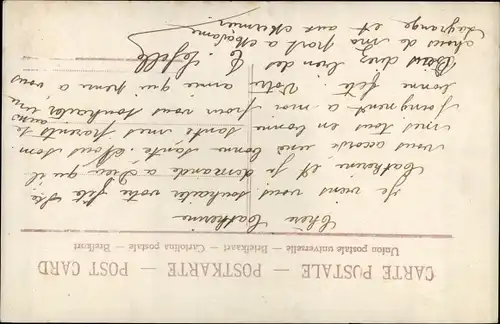 CARTE POSTALE — POSTKARTE — POST CARD
Union postale universelle — Briefkaart — Cartolina postale — Brefkort
Chère Catherine
Je viens vous souhaiter votre fête Ste
Catherine et je demande à Dieu qu'il
vous accorde une bonne santé. Nous som.
mes tous en bonne santé mes parents se
joingnent a moi pour vous souhaiter une
bonne fête. Votre amie qui pense a vous
Vous direz bien des
choses de ma part a Madame
Lagrange et aux